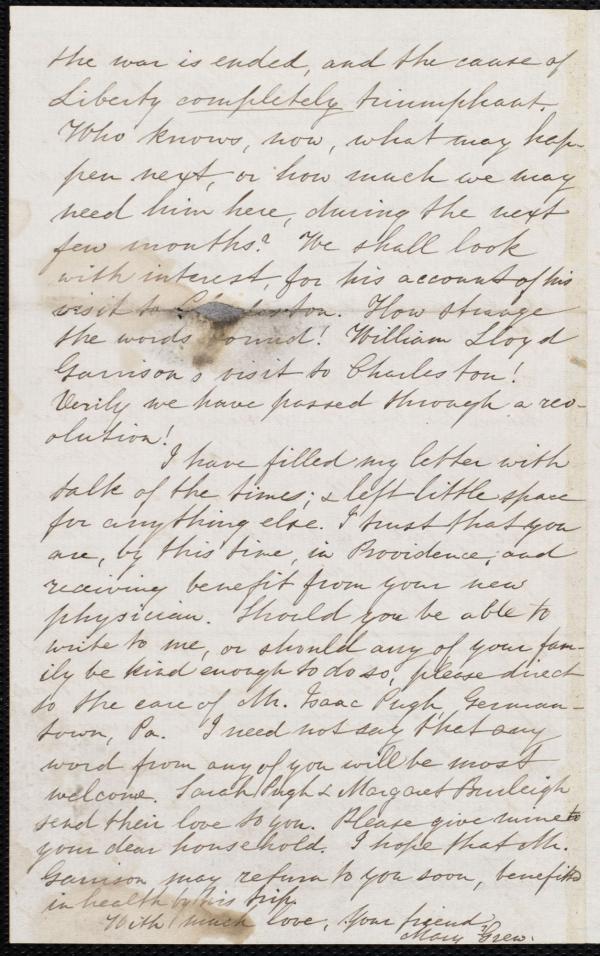 the war is ended, and the cause of
Liberty completely triumphant.
Who knows, now, what may hap-
pen next, or how much we may
need him here, during the next
few months? We shall look
with interest, for his account of his
visit to Charleston. How strange
the words sound! William Lloyd
Garrison's visit to Charleston!
Verily we have passed through a rev-
olution!
I have filled my letter with
talk of the times; & left little space
for anything else. I trust that you
are, by this time, in Providence, and
receiving benefit from your new
physician. Should you be able to
write to me, or should any of your fam-
ily be kind enough to do so, please direct
to the care of Mr. Isaac Pugh, German-
town, Pa. I need not say that any
word from any of you will be most
welcome. Sarah Pugh & Margaret Burleigh
send their love to you. Please give mine to
your dear household. I hope that Mr.
Garrison may return to you soon, benefitted
in health by this trip.
With much love, Your friend,
Mary Grew.